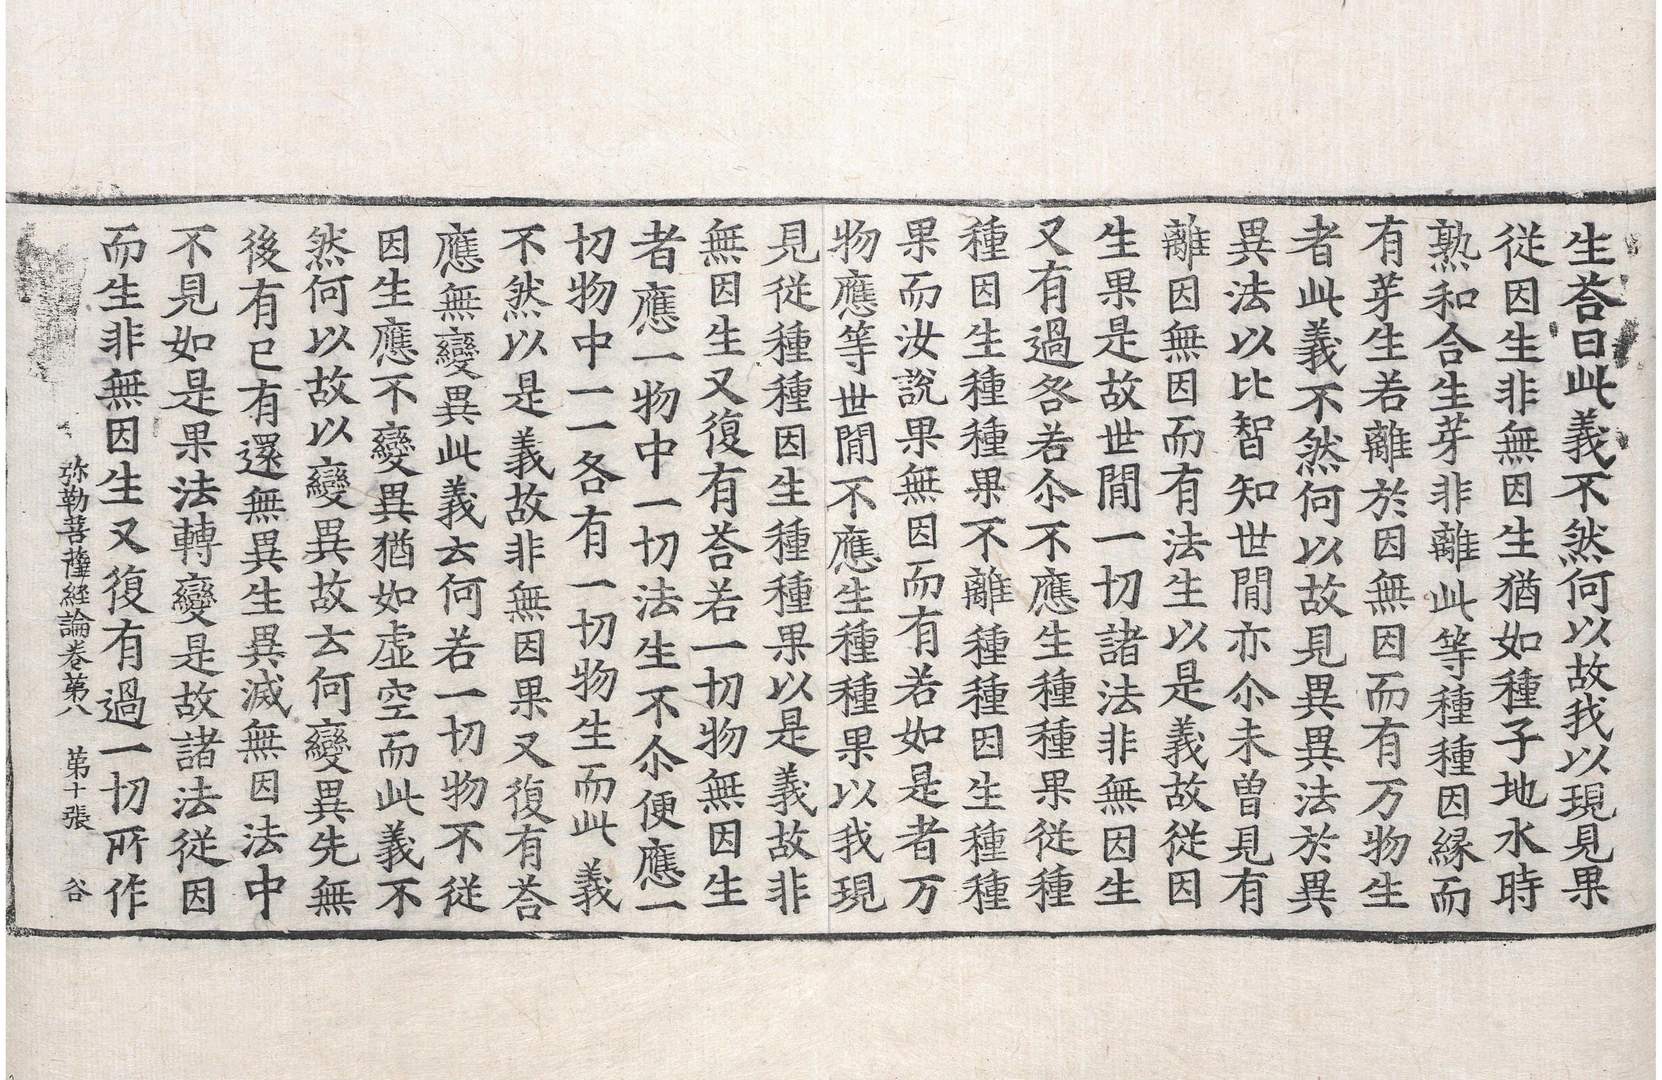 生荅曰此義不然何以故我以現見果
從因生非無因生猶如種子地水時
熟和合生芽非離此等種種因緣而
有芽生若離於因無因而有万物生
者此義不然何以故見異異法於異
異法以比智知世間亦尒未曾見有
離因無因而有法生以是義故從因
生果是故世間一切諸法非無因生
又有過各若尒不應生種種果從種
種因生種種果不離種種因生種種
果而汝說果無因而有若如是者万
物應等世間不應生種種果以我現
見從種種因生種種果以是義故非
無因生又復有荅若一切物無因生
者應一物中一切法生不尒便應一
切物中一一各有一切物生而此義
不然以是義故非無因果又復有荅
應無變異此義云何若一切物不從
因生應不變異猶如虛空而此義不
然何以故以變異故云何變異先無
後有已有還無異生異滅無因法中
不見如是果法轉變是故諸法從因
而生非無因生又復有過一切所作
弥勒菩薩経論卷第八 第十張 谷